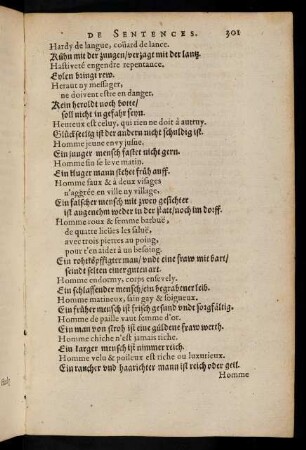 DE SENTENCES. 301
Hardy de langue, coüard de lance.
Kühn mit der zungen/verzagt mit der lantz.
Hastiveté engendre repentance.
Eylen bringt rew.
Heraut ny messager,
ne doivent estre en danger.
Kein heroldt noch botte/
soll nicht in gefahr seyn.
Heureux est celuy, qui rien ne doit à autruy.
Glückselig ist der andern nicht schuldig ist.
Homme jeune envy jusne.
Ein junger mensch fastet nicht gern.
Homme fin se leve matin.
Ein kluger mann stehet früh auff.
Homme faux & à deux visages
n'aggrée en ville ny village.
Ein falscher mensch mit zwey gesichter
ist angenehm weder in der statt/noch im dorff.
Homme roux & femme barbuë,
de quatre lieües les saluë,
avec trois pierres au poing,
pour t'en aider à un besoing.
Ein rohtköpffiger man/ vnd eine fraw mit bart/
seindt selten einer guten art.
Homme endormy, corps ensevely.
Ein schlaffender mensch/ein begrabener leib.
Homme matineux, sain gay & soigneux.
Ein früher mensch ist frisch gesund vndt sorgfältig.
Homme de paille vaut femme d'or.
Ein man von stroh ist eine güldene fraw werth.
Homme chiche n'est jamais riche.
Ein karger mensch ist nimmer reich.
Homme velu & poileux est riche ou luxurieux.
Ein raucher vnd haarichter mann ist reich oder geil.
Homme